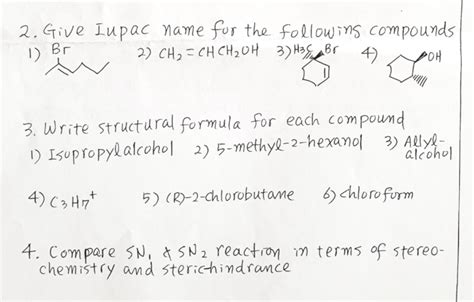 2. Give Iupac name for the following compounds
1) Br 2) CH₂=CHCH₂OH 3) H₃C Br 4) OH
3. Write structural formula for each compound
1) Isopropylalcohol 2) 5-methyl-2-hexanol 3) Allyl-
alcohol
4) C₃H₇⁺ 5) (R)-2-chlorobutane 6) chloroform
4. Compare SN₁ & SN₂ reaction in terms of stereo-
chemistry and sterichindrance